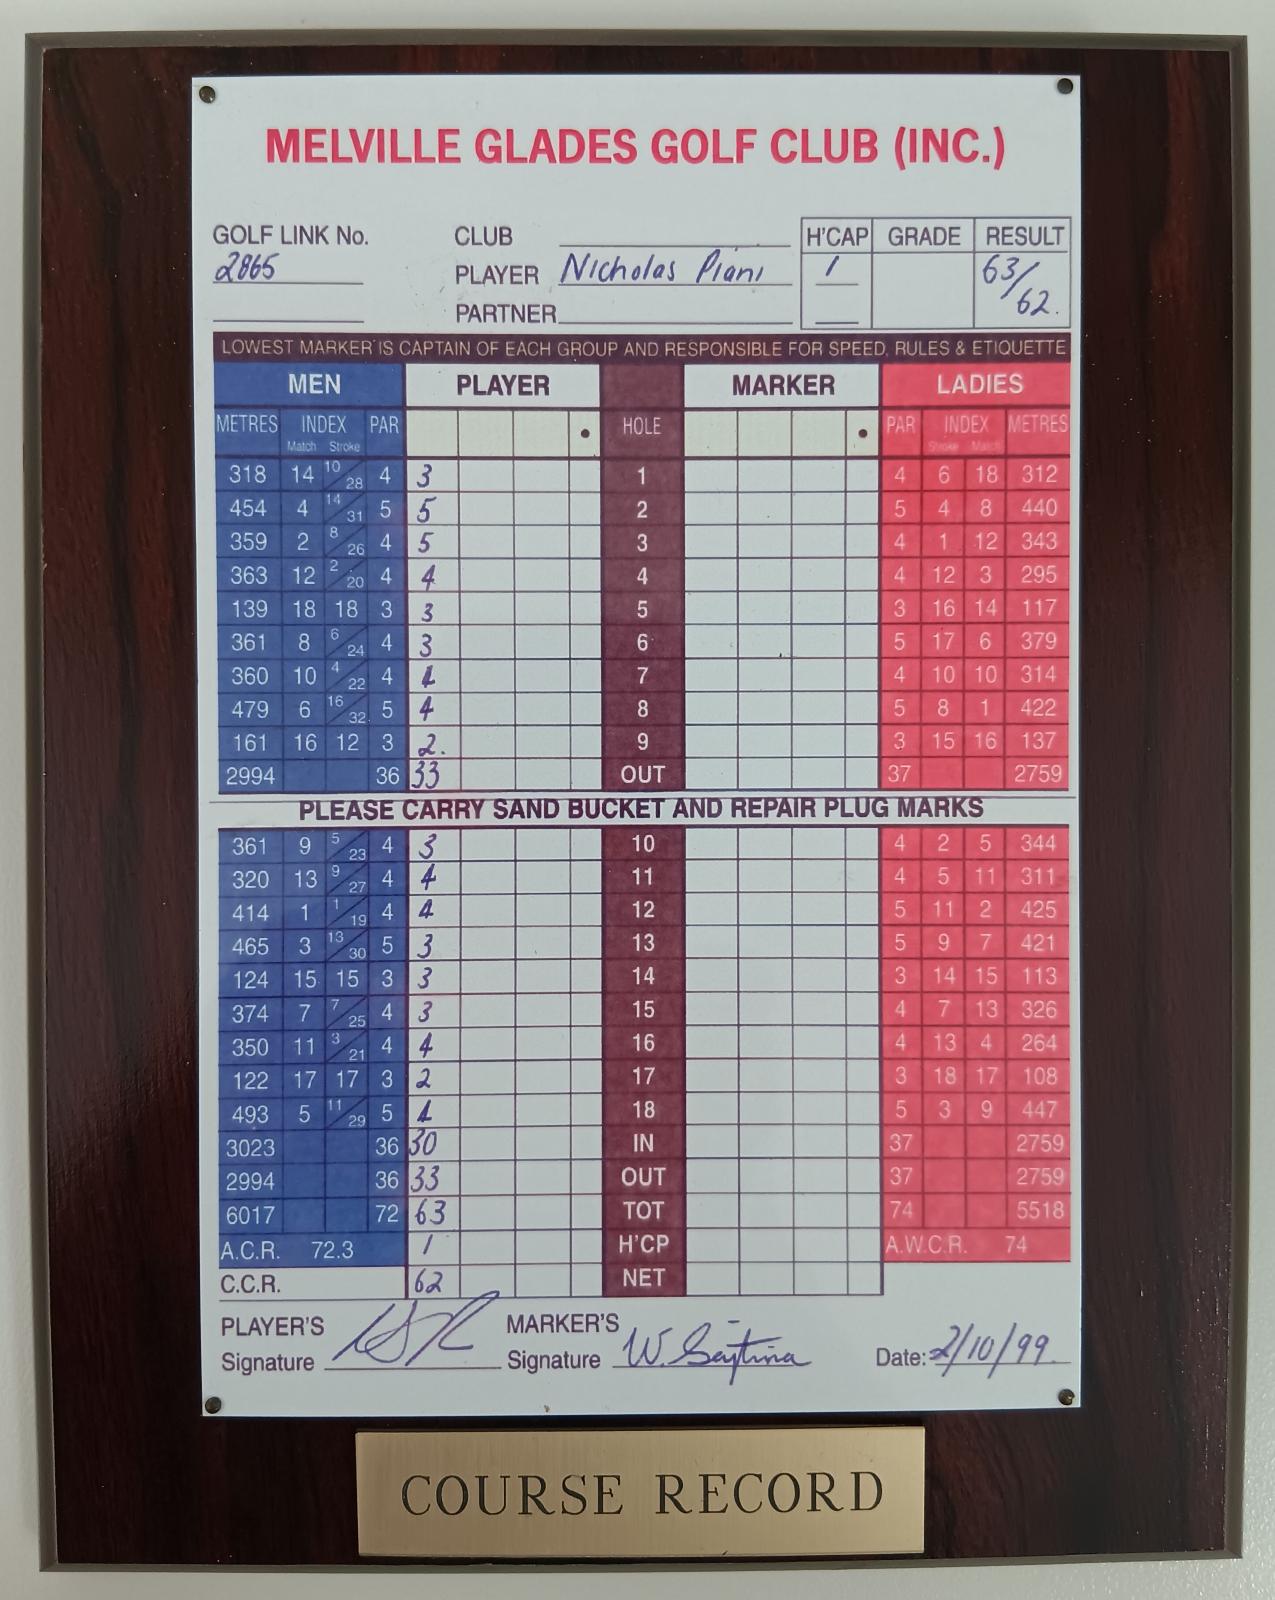 MELVILLE GLADES GOLF CLUB (INC.)
GOLF LINK No. CLUB H'CAP GRADE RESULT
2865 PLAYER Nicholas Piani 1 63/62.
PARTNER
LOWEST MARKER IS CAPTAIN OF EACH GROUP AND RESPONSIBLE FOR SPEED, RULES & ETIQUETTE
MEN PLAYER MARKER LADIES
METRES INDEX PAR HOLE PAR INDEX METRES
Match Stroke Stroke Match
318 14 10/28 4 3 1 4 6 18 312
454 4 14/31 5 5 2 5 4 8 440
359 2 8/26 4 5 3 4 1 12 343
363 12 2/20 4 4 4 4 12 3 295
139 18 18 3 3 5 3 16 14 117
361 8 6/24 4 3 6 5 17 6 379
360 10 4/22 4 4 7 4 10 10 314
479 6 16/32 5 4 8 5 8 1 422
161 16 12 3 2. 9 3 15 16 137
2994 36 33 OUT 37 2759
PLEASE CARRY SAND BUCKET AND REPAIR PLUG MARKS
361 9 5/23 4 3 10 4 2 5 344
320 13 9/27 4 4 11 4 5 11 311
414 1 1/19 4 4 12 5 11 2 425
465 3 13/30 5 3 13 5 9 7 421
124 15 15 3 3 14 3 14 15 113
374 7 7/25 4 3 15 4 7 13 326
350 11 3/21 4 4 16 4 13 4 264
122 17 17 3 2 17 3 18 17 108
493 5 11/29 5 4 18 5 3 9 447
3023 36 30 IN 37 2759
2994 36 33 OUT 37 2759
6017 72 63 TOT 74 5518
A.C.R. 72.3 1 H'CP A.W.C.R. 74
C.C.R. 62 NET
PLAYER'S MARKER'S
Signature Signature Date: 2/10/99.
COURSE RECORD